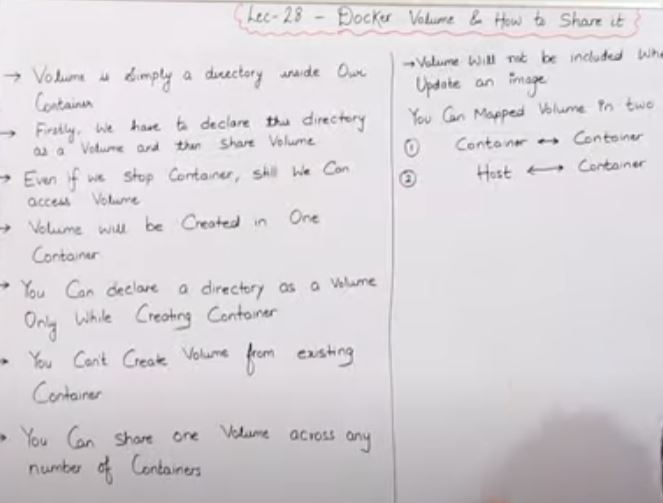 Lec-28 - Docker Volume & How to Share it
→ Volume is Simply a directory inside Our
Container
→ Firstly, We have to declare this directory
as a Volume and then Share Volume
→ Even if we Stop Container, still We Can
access Volume
→ Volume will be Created in One
Container
→ You Can declare a directory as a Volume
Only While Creating Container
→ You Can't Create Volume from existing
Container
→ You Can Share one Volume across any
number of Containers
→ Volume Will not be included
Update an image
You Can Mapped Volume in two
① Container ↔ Container
② Host ↔ Container